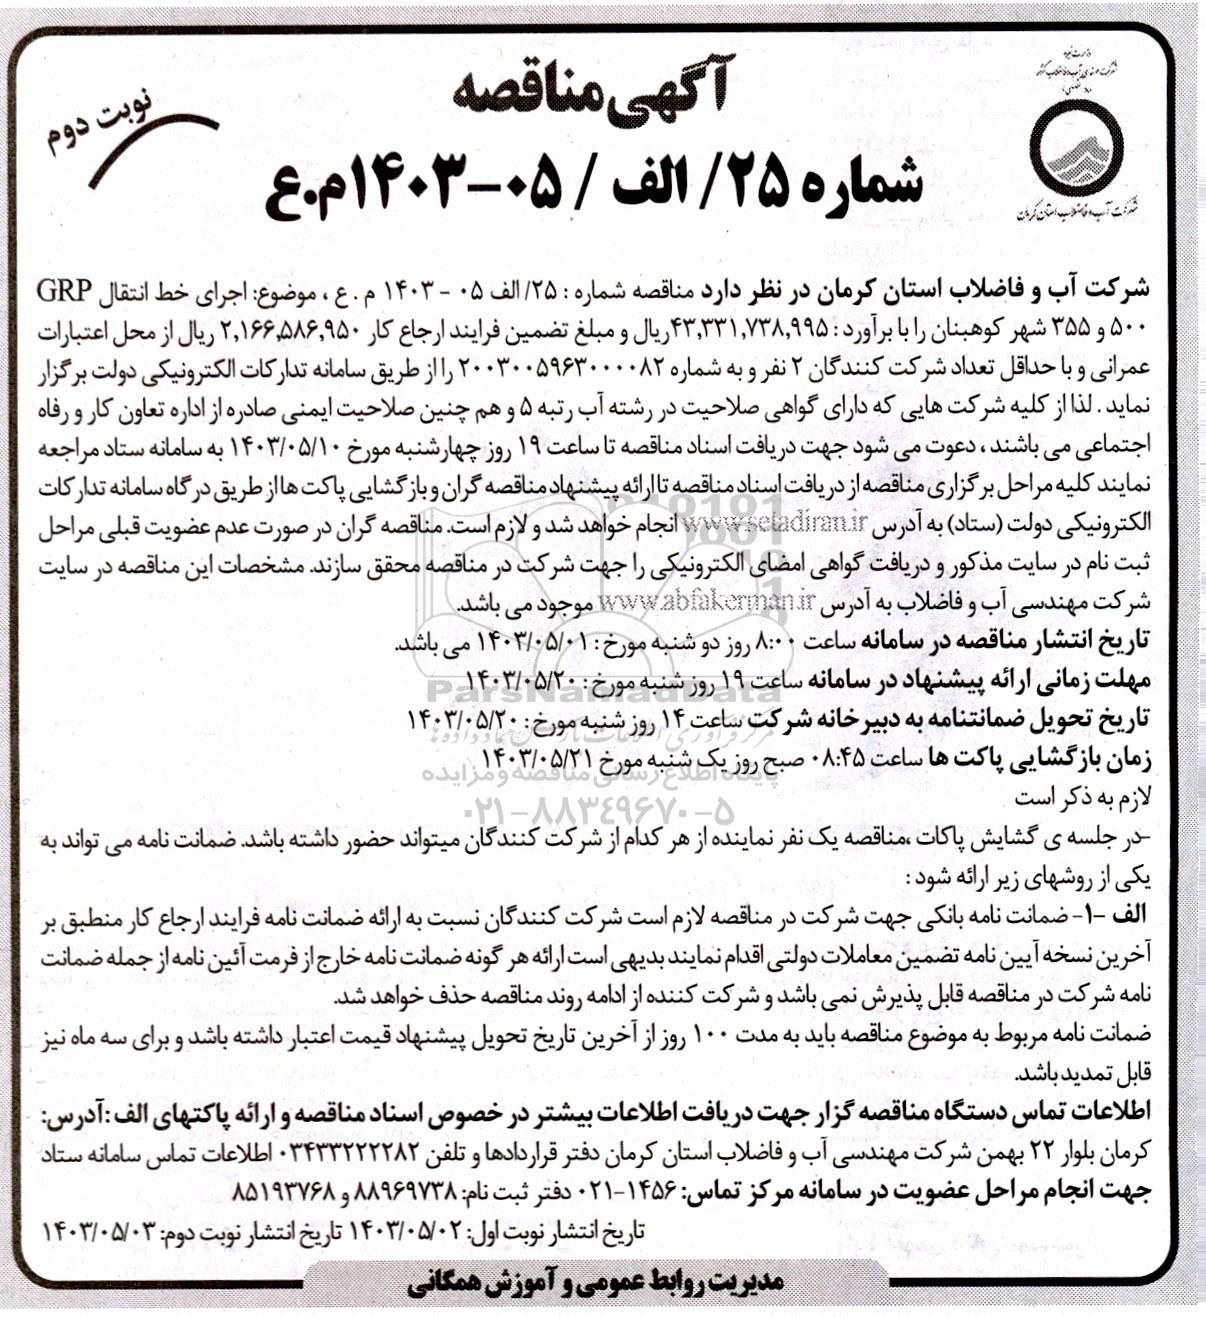 وزارت نیرو
شرکت مهندسی آب و فاضلاب کشور
شرکت آب و فاضلاب استان کرمان
نوبت دوم
آگهی مناقصه
شماره ۲۵/ الف / ۰۵-۱۴۰۳م.ع
شرکت آب و فاضلاب استان کرمان در نظر دارد مناقصه شماره : ۲۵/ الف ۰۵ - ۱۴۰۳ م . ع ، موضوع: اجرای خط انتقال GRP
۵۰۰ و ۳۵۵ شهر کوهبنان را با برآورد : ۴۳,۳۳۱,۷۳۸,۹۹۵ریال و مبلغ تضمین فرایند ارجاع کار ۲,۱۶۶,۵۸۶,۹۵۰ ریال از محل اعتبارات
عمرانی و با حداقل تعداد شرکت کنندگان ۲ نفر و به شماره ۲۰۰۳۰۰۵۹۶۳۰۰۰۰۸۲ را از طریق سامانه تدارکات الکترونیکی دولت برگزار
نماید . لذا از کلیه شرکت هایی که دارای گواهی صلاحیت در رشته آب رتبه ۵ و هم چنین صلاحیت ایمنی صادره از اداره تعاون کار و رفاه
اجتماعی می باشند ، دعوت می شود جهت دریافت اسناد مناقصه تا ساعت ۱۹ روز چهارشنبه مورخ ۱۴۰۳/۰۵/۱۰ به سامانه ستاد مراجعه
نمایند کلیه مراحل برگزاری مناقصه از دریافت اسناد مناقصه تا ارائه پیشنهاد مناقصه گران و بازگشایی پاکت ها از طریق درگاه سامانه تدارکات
الکترونیکی دولت (ستاد) به آدرس www.setadiran.ir انجام خواهد شد و لازم است. مناقصه گران در صورت عدم عضویت قبلی مراحل
ثبت نام در سایت مذکور و دریافت گواهی امضای الکترونیکی را جهت شرکت در مناقصه محقق سازند. مشخصات این مناقصه در سایت
شرکت مهندسی آب و فاضلاب به آدرس www.abfakerman.ir موجود می باشد.
تاریخ انتشار مناقصه در سامانه ساعت ۸:۰۰ روز دو شنبه مورخ : ۱۴۰۳/۰۵/۰۱ می باشد.
مهلت زمانی ارائه پیشنهاد در سامانه ساعت ۱۹ روز شنبه مورخ : ۱۴۰۳/۰۵/۲۰
ParsNamadData
تاریخ تحویل ضمانتنامه به دبیرخانه شرکت ساعت ۱۴ روز شنبه مورخ : ۱۴۰۳/۰۵/۲۰
زمان بازگشایی پاکت ها ساعت ۰۸:۴۵ صبح روز یک شنبه مورخ ۱۴۰۳/۰۵/۲۱
پایگاه اطلاع رسانی مناقصه و مزایده
لازم به ذکر است
۰۲۱-۸۸۳۴۹۶۷۰-۵
-در جلسه ی گشایش پاکات ،مناقصه یک نفر نماینده از هر کدام از شرکت کنندگان میتواند حضور داشته باشد. ضمانت نامه می تواند به
یکی از روشهای زیر ارائه شود :
الف -۱- ضمانت نامه بانکی جهت شرکت در مناقصه لازم است شرکت کنندگان نسبت به ارائه ضمانت نامه فرایند ارجاع کار منطبق بر
آخرین نسخه آیین نامه تضمین معاملات دولتی اقدام نمایند بدیهی است ارائه هر گونه ضمانت نامه خارج از فرمت آئین نامه از جمله ضمانت
نامه شرکت در مناقصه قابل پذیرش نمی باشد و شرکت کننده از ادامه روند مناقصه حذف خواهد شد.
ضمانت نامه مربوط به موضوع مناقصه باید به مدت ۱۰۰ روز از آخرین تاریخ تحویل پیشنهاد قیمت اعتبار داشته باشد و برای سه ماه نیز
قابل تمدید باشد.
اطلاعات تماس دستگاه مناقصه گزار جهت دریافت اطلاعات بیشتر در خصوص اسناد مناقصه و ارائه پاکتهای الف : آدرس:
کرمان بلوار ۲۲ بهمن شرکت مهندسی آب و فاضلاب استان کرمان دفتر قراردادها و تلفن ۰۳۴۳۳۲۲۲۲۸۲ اطلاعات تماس سامانه ستاد
جهت انجام مراحل عضویت در سامانه مرکز تماس: ۱۴۵۶-۰۲۱ دفتر ثبت نام: ۸۸۹۶۹۷۳۸ و ۸۵۱۹۳۷۶۸
تاریخ انتشار نوبت اول: ۱۴۰۳/۰۵/۰۲ تاریخ انتشار نوبت دوم: ۱۴۰۳/۰۵/۰۳
مدیریت روابط عمومی و آموزش همگانی